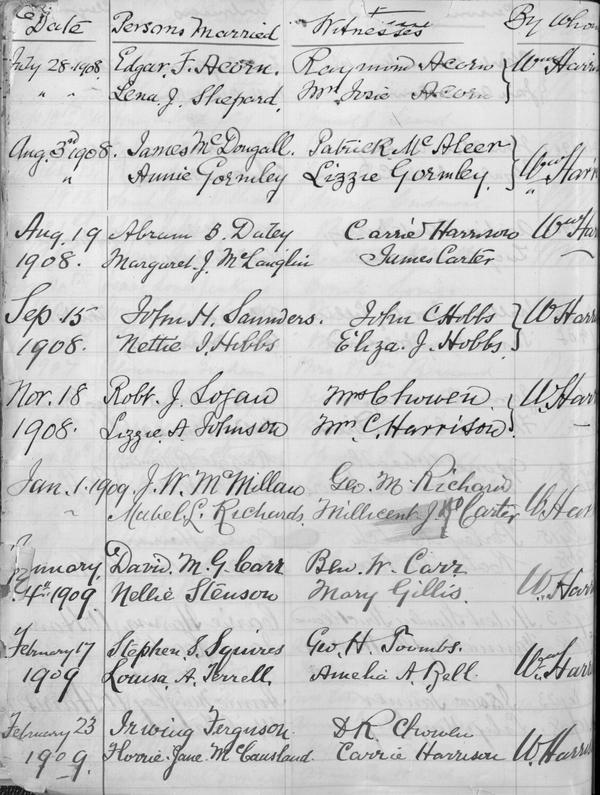 Date Persons Married Witnesses By Whom
July 28-1908. Edgar. F. Acorn. Raymond Acorn } Wm Harri
" " - Lena. J. Shepard. Mrs Josie Acorn
Aug. 3rd 1908. James McDougall. Patrick McAleer } Wm Harri
" Annie Gormley Lizzie Gormley. "
Aug. 19 Abram B. Daley Carrie Harrison Wm Har
1908. Margaret. J. McLauglin James Carter -
Sep. 15 John H. Saunders. John C Hobbs } W Harri
1908. Nettie I. Hobbs Eliza. J. Hobbs.
Nov. 18 Robt. J. Logan Mrs Chowen } W. Har
1908. Lizzie. A Johnson Mrs C. Harrison. -
Jan. 1. 1909 J. W. McMillan Geo. M. Richard
" Mabel L. Richards. Millicent J. Carter W. Har
January David. M. G. Carr Ben. W. Carr
4th 1909 Nellie Stenson Mary Gillis. W. Harri
February 17 Stephen S. Squires Geo. H. Toombs.
1909 Louisa A. Terrell. Amelia A. Bell. Wm Harri
February 23 Irwing Ferguson. D R. Chowen
1909. Florrie Jane McCausland. Carrie Harrison W. Harri